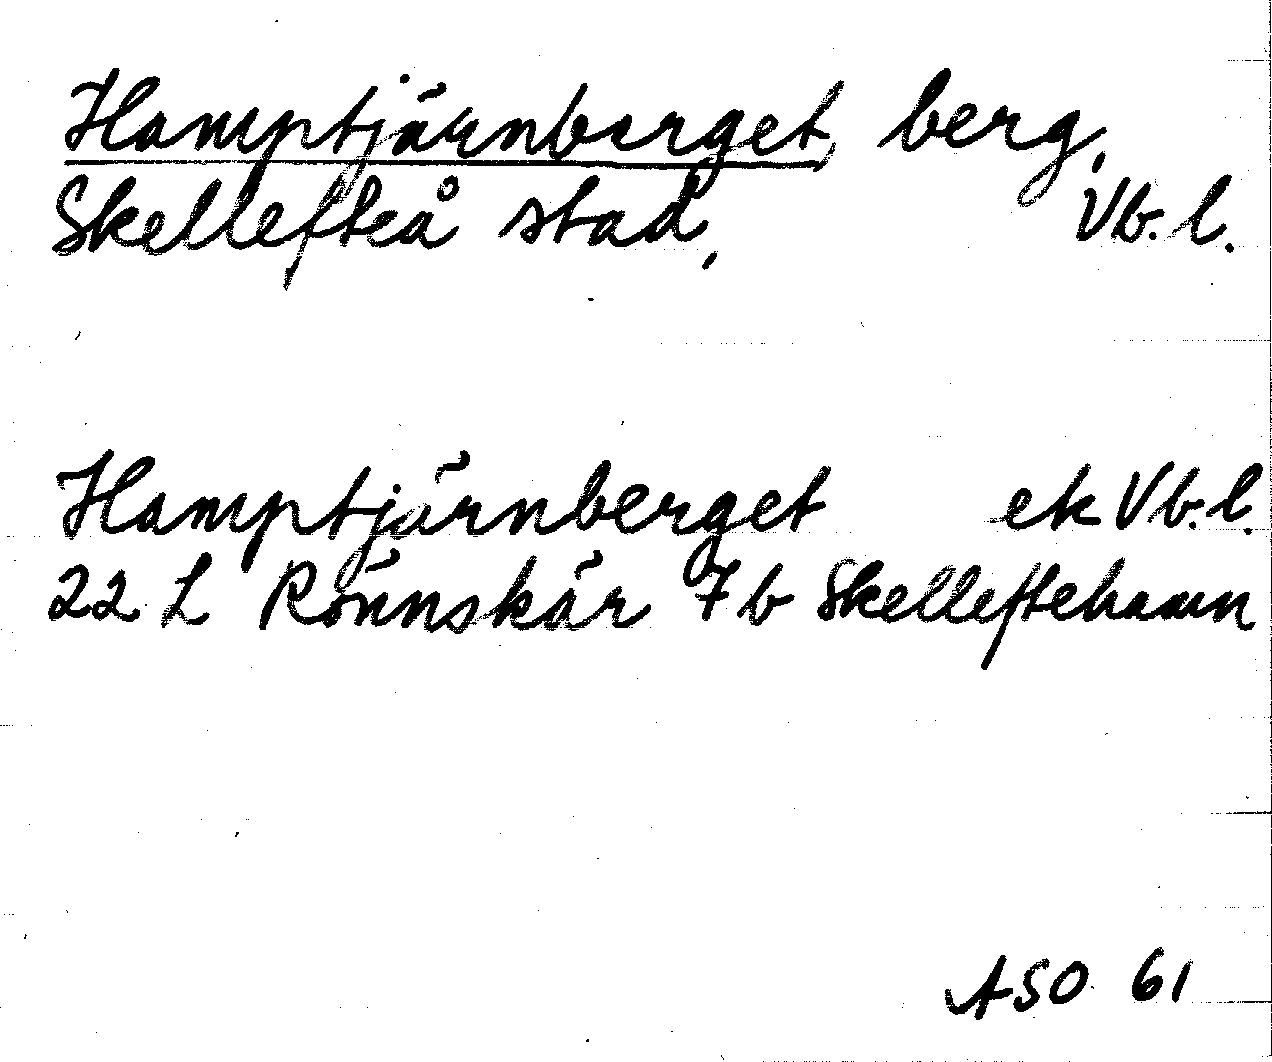 Hamptjärnberget, berg,
Skellefteå stad, Vb. l.
Hamptjärnberget ek Vb. l.
22 L Rönnskär 7b Skelleftehamn
ASO 61